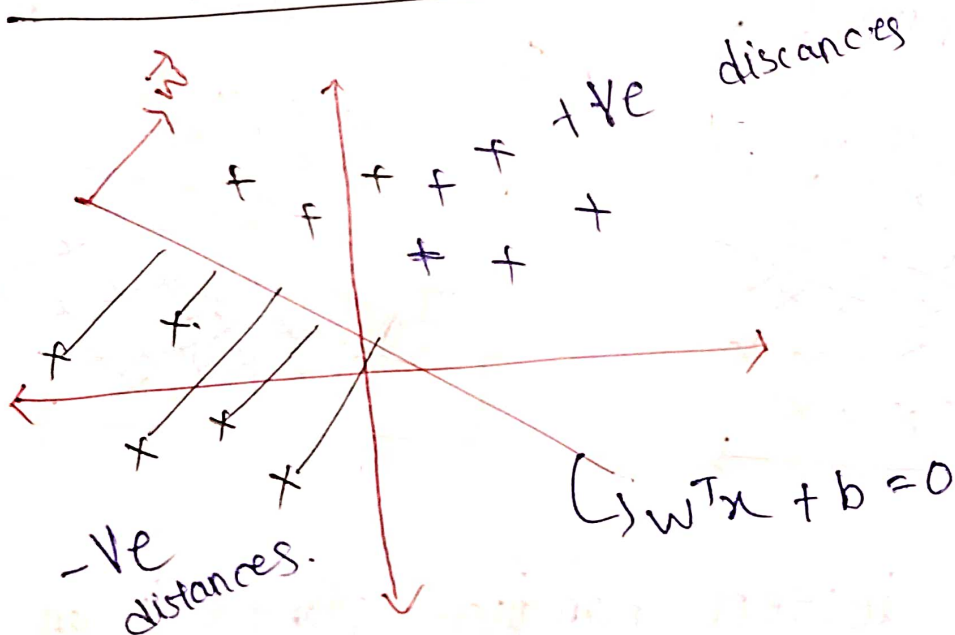 w
+ve discances
wTx + b = 0
-ve
distances.